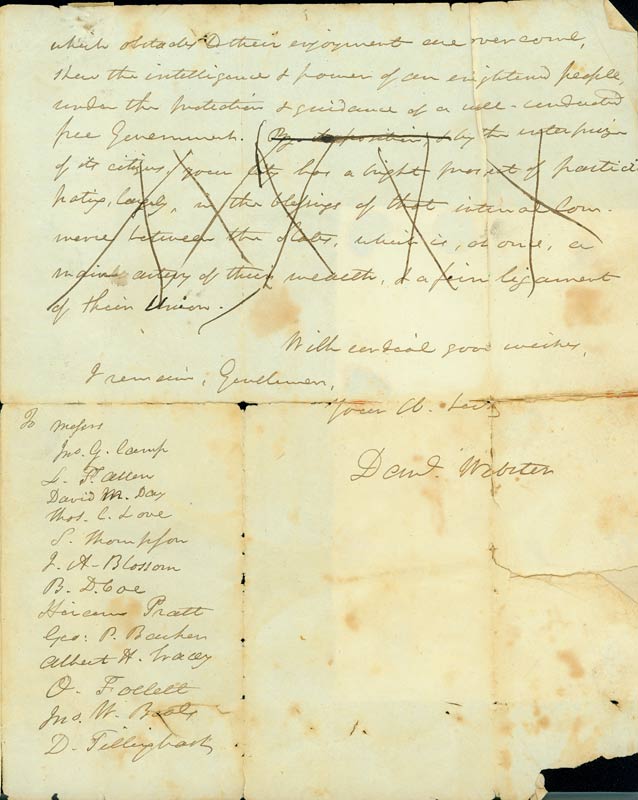 which obstacles to their enjoyment are overcome,
shew the intelligence & power of an enlightend people,
under the protection & guidance of a well-conducted
free Government. (By its position, & by the interprize
of its citizens, your city has a bright prospect of partici
pating, largely, in the blessings of that internal Com-
merce between the states, which is, at once, a
main artery of their wealth, & a firm ligament
of their Union.
With cordial good wishes,
I remain, Gentlemen,
Your Ob. Sert
Danl. Webster
To Messrs
Jno. G. Camp
L. F. Allen
David M. Day
Thos. C. Love
S. Thompson
I. A. Blossom
B. D. Coe
Hiram Pratt
Geo: P. Barker
Albert H. Tracy
O. Follett
Jno. W. Beals
D. Tillinghast